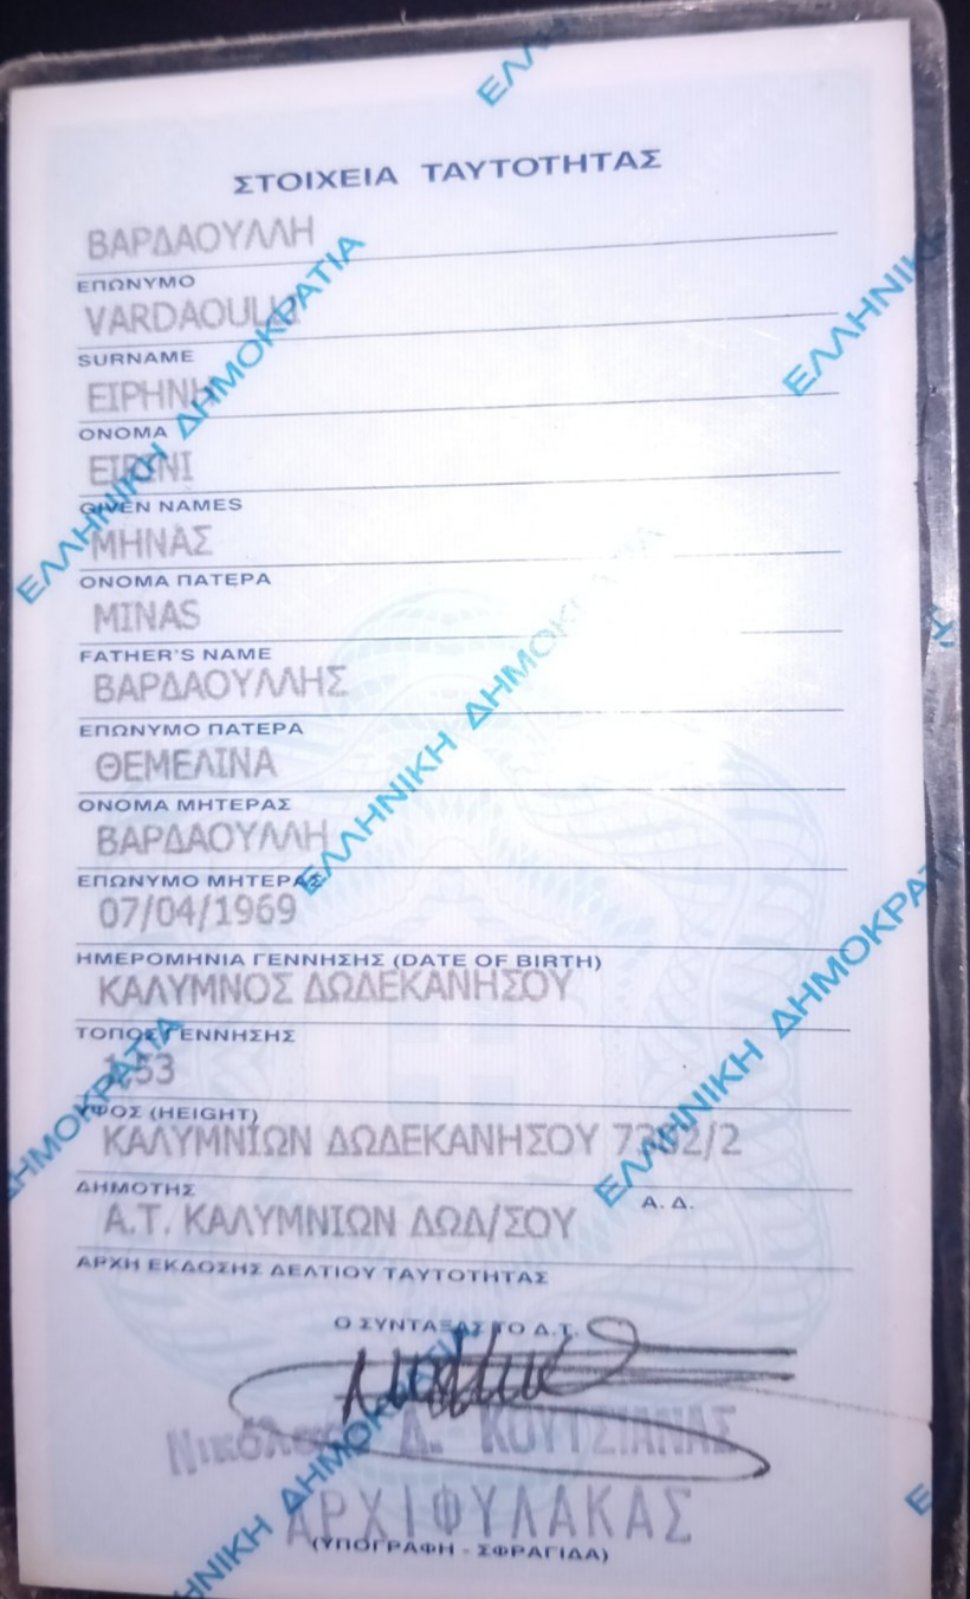 ΣΤΟΙΧΕΙΑ ΤΑΥΤΟΤΗΤΑΣ
ΒΑΡΔΑΟΥΛΛΗ
ΕΠΩΝΥΜΟ
VARDAOULLI
SURNAME
ΕΙΡΗΝΗ
ΟΝΟΜΑ
EIRINI
GIVEN NAMES
ΜΗΝΑΣ
ΟΝΟΜΑ ΠΑΤΕΡΑ
MINAS
FATHER'S NAME
ΒΑΡΔΑΟΥΛΛΗΣ
ΕΠΩΝΥΜΟ ΠΑΤΕΡΑ
ΘΕΜΕΛΙΝΑ
ΟΝΟΜΑ ΜΗΤΕΡΑΣ
ΒΑΡΔΑΟΥΛΛΗ
ΕΠΩΝΥΜΟ ΜΗΤΕΡΑΣ
07/04/1969
ΗΜΕΡΟΜΗΝΙΑ ΓΕΝΝΗΣΗΣ (DATE OF BIRTH)
ΚΑΛΥΜΝΟΣ ΔΩΔΕΚΑΝΗΣΟΥ
ΤΟΠΟΣ ΓΕΝΝΗΣΗΣ
1,53
ΥΨΟΣ (HEIGHT)
ΚΑΛΥΜΝΙΩΝ ΔΩΔΕΚΑΝΗΣΟΥ
ΔΗΜΟΤΗΣ Α.Δ.
Α.Τ. ΚΑΛΥΜΝΙΩΝ ΔΩΔ/ΣΟΥ
ΑΡΧΗ ΕΚΔΟΣΗΣ ΔΕΛΤΙΟΥ ΤΑΥΤΟΤΗΤΑΣ
Ο ΣΥΝΤΑΞΑΣ ΤΟ Δ.Τ.
Νικόλαος Δ. ΚΟΥΤΣΙΑΝΑΣ
ΑΡΧΙΦΥΛΑΚΑΣ
(ΥΠΟΓΡΑΦΗ - ΣΦΡΑΓΙΔΑ)
ΕΛΛΗΝΙΚΗ ΔΗΜΟΚΡΑΤΙΑ
ΕΛΛΗΝΙΚΗ ΔΗΜΟΚΡΑΤΙΑ